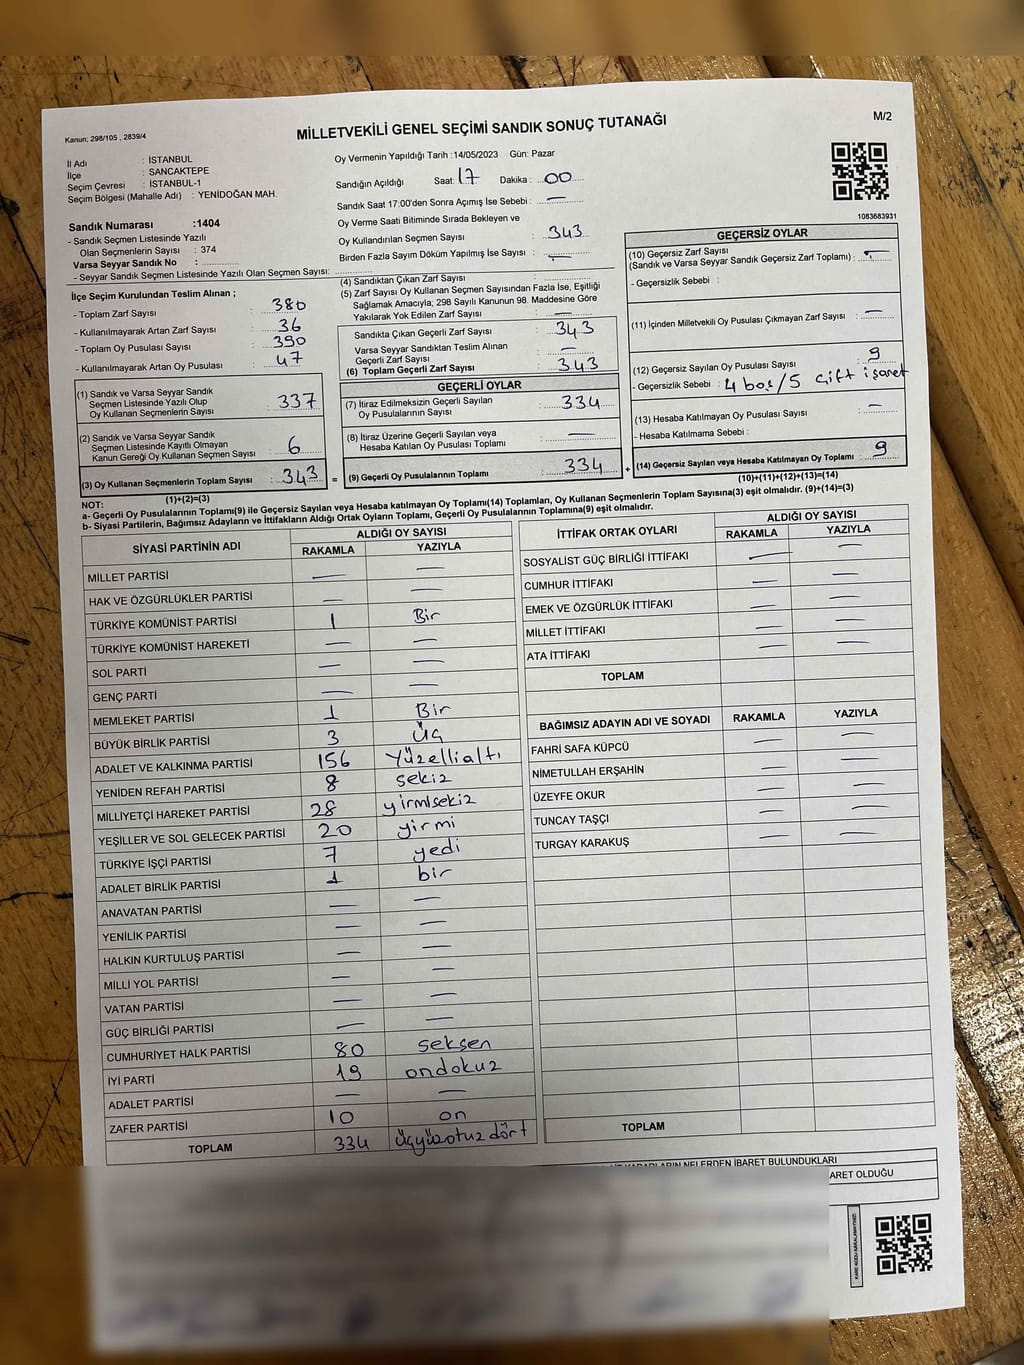 Kanun; 298/105 , 2839/4
MİLLETVEKİLİ GENEL SEÇİMİ SANDIK SONUÇ TUTANAĞI
M/2
İl Adı : İSTANBUL
İlçe : SANCAKTEPE
Seçim Çevresi : İSTANBUL-1
Seçim Bölgesi (Mahalle Adı) : YENİDOĞAN MAH.
Sandık Numarası :1404
- Sandık Seçmen Listesinde Yazılı
Olan Seçmenlerin Sayısı : 374
Varsa Seyyar Sandık No :
- Seyyar Sandık Seçmen Listesinde Yazılı Olan Seçmen Sayısı:
Oy Vermenin Yapıldığı Tarih :14/05/2023 Gün: Pazar
Sandığın Açıldığı Saat: 17 Dakika : 00
Sandık Saat 17:00'den Sonra Açımış İse Sebebi : —
Oy Verme Saati Bitiminde Sırada Bekleyen ve
Oy Kullandırılan Seçmen Sayısı : 343
Birden Fazla Sayım Döküm Yapılmış İse Sayısı : —
1083683931
İlçe Seçim Kurulundan Teslim Alınan ;
- Toplam Zarf Sayısı : 380
- Kullanılmayarak Artan Zarf Sayısı : 36
- Toplam Oy Pusulası Sayısı : 390
- Kullanılmayarak Artan Oy Pusulası : 47
(1) Sandık ve Varsa Seyyar Sandık
Seçmen Listesinde Yazılı Olup
Oy Kullanan Seçmenlerin Sayısı : 337
(2) Sandık ve Varsa Seyyar Sandık
Seçmen Listesinde Kayıtlı Olmayan
Kanun Gereği Oy Kullanan Seçmen Sayısı : 6
(3) Oy Kullanan Seçmenlerin Toplam Sayısı : 343
(1)+(2)=(3)
(4) Sandıktan Çıkan Zarf Sayısı :
(5) Zarf Sayısı Oy Kullanan Seçmen Sayısından Fazla İse, Eşitliği
Sağlamak Amacıyla; 298 Sayılı Kanunun 98. Maddesine Göre
Yakılarak Yok Edilen Zarf Sayısı : —
Sandıkta Çıkan Geçerli Zarf Sayısı : 343
Varsa Seyyar Sandıktan Teslim Alınan
Geçerli Zarf Sayısı : —
(6) Toplam Geçerli Zarf Sayısı : 343
GEÇERLİ OYLAR
(7) İtiraz Edilmeksizin Geçerli Sayılan
Oy Pusulalarının Sayısı : 334
(8) İtiraz Üzerine Geçerli Sayılan veya
Hesaba Katılan Oy Pusulası Toplamı : —
= (9) Geçerli Oy Pusulalarının Toplamı : 334 +
GEÇERSİZ OYLAR
(10) Geçersiz Zarf Sayısı
(Sandık ve Varsa Seyyar Sandık Geçersiz Zarf Toplamı) :
- Geçersizlik Sebebi :
(11) İçinden Milletvekili Oy Pusulası Çıkmayan Zarf Sayısı : —
(12) Geçersiz Sayılan Oy Pusulası Sayısı : 9
- Geçersizlik Sebebi : 4 boş/5 Çift işaret
(13) Hesaba Katılmayan Oy Pusulası Sayısı : —
- Hesaba Katılmama Sebebi :
(14) Geçersiz Sayılan veya Hesaba Katılmayan Oy Toplamı : 9
(10)+(11)+(12)+(13)=(14)
NOT:
a- Geçerli Oy Pusulalarının Toplamı(9) ile Geçersiz Sayılan veya Hesaba katılmayan Oy Toplamı(14) Toplamları, Oy Kullanan Seçmenlerin Toplam Sayısına(3) eşit olmalıdır. (9)+(14)=(3)
b- Siyasi Partilerin, Bağımsız Adayların ve İttifakların Aldığı Ortak Oyların Toplamı, Geçerli Oy Pusulalarının Toplamına(9) eşit olmalıdır.
SİYASİ PARTİNİN ADI ALDIĞI OY SAYISI
RAKAMLA YAZIYLA
MİLLET PARTİSİ — —
HAK VE ÖZGÜRLÜKLER PARTİSİ — —
TÜRKİYE KOMÜNİST PARTİSİ 1 Bir
TÜRKİYE KOMÜNİST HAREKETİ — —
SOL PARTİ — —
GENÇ PARTİ — —
MEMLEKET PARTİSİ 1 Bir
BÜYÜK BİRLİK PARTİSİ 3 Üç
ADALET VE KALKINMA PARTİSİ 156 Yüzellialtı
YENİDEN REFAH PARTİSİ 8 sekiz
MİLLİYETÇİ HAREKET PARTİSİ 28 yirmisekiz
YEŞİLLER VE SOL GELECEK PARTİSİ 20 yirmi
TÜRKİYE İŞÇİ PARTİSİ 7 yedi
ADALET BİRLİK PARTİSİ 1 bir
ANAVATAN PARTİSİ — —
YENİLİK PARTİSİ — —
HALKIN KURTULUŞ PARTİSİ — —
MİLLİ YOL PARTİSİ — —
VATAN PARTİSİ — —
GÜÇ BİRLİĞİ PARTİSİ — —
CUMHURİYET HALK PARTİSİ 80 seksen
İYİ PARTİ 19 ondokuz
ADALET PARTİSİ — —
ZAFER PARTİSİ 10 on
TOPLAM 334 üçyüzotuzdört
İTTİFAK ORTAK OYLARI ALDIĞI OY SAYISI
RAKAMLA YAZIYLA
SOSYALİST GÜÇ BİRLİĞİ İTTİFAKI — —
CUMHUR İTTİFAKI — —
EMEK VE ÖZGÜRLÜK İTTİFAKI — —
MİLLET İTTİFAKI — —
ATA İTTİFAKI — —
TOPLAM
BAĞIMSIZ ADAYIN ADI VE SOYADI RAKAMLA YAZIYLA
FAHRİ SAFA KÜPCÜ — —
NİMETULLAH ERŞAHİN — —
ÜZEYFE OKUR — —
TUNCAY TAŞÇI — —
TURGAY KARAKUŞ — —
TOPLAM
NELERDEN İBARET BULUNDUKLARI
ARET OLDUĞU